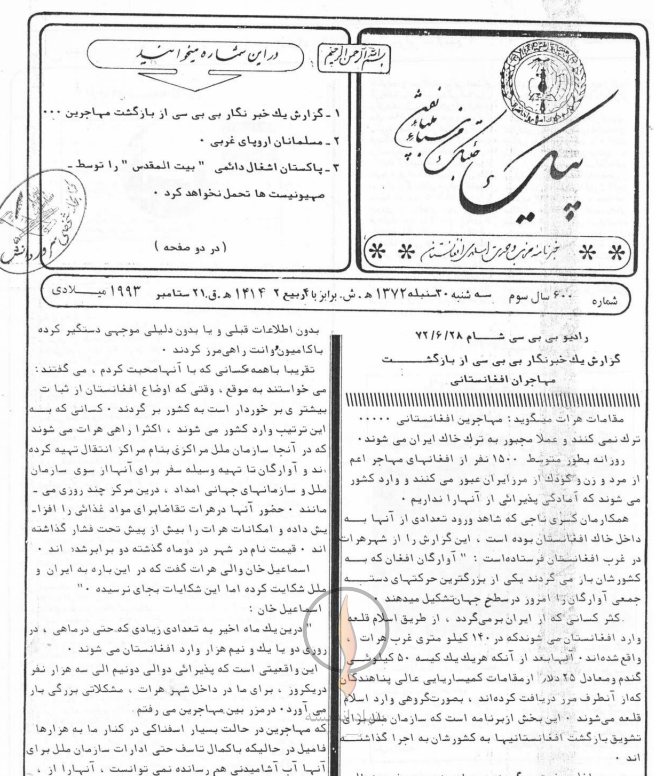 بسم الله الرحمن الرحیم
در این شماره میخوانید
۱ ـ گزارش یك خبر نگار بی بی سی از بازگشت مهاجرین ۰۰۰
۲ ـ مسلمانان اروپای غربی ۰
۳ ـ پاکستان اشغال دائمی " بیت المقدس " را توسط ـ
صهیونیست ها تحمل نخواهد کرد ۰
( در دو صفحه )
پیك
خبرنامه حزب وحدت اسلامی افغانستان
شماره ۶۰۰ سال سوم سه شنبه ۳۰سنبله۱۳۷۲ ه‍ ـ ش. برابر با ۴ربیع ۲ ۱۴۱۴ ه‍ ـ ق.۲۱ ستامبر ۱۹۹۳ میــلادی
رادیو بی بی سی شــام ۷۲/۶/۲۸
گزارش یك خبرنگار بی بی سی از بازگشــــت
مهاجران افغانستانی
مقامات هرات میگوید : مهاجرین افغانستانی ۰۰۰۰۰
ترك نمی کنند و عملا مجبور به ترك خاك ایران می شوند۰
روزانه بطور متوسط ۱۵۰۰ نفر از افغانهای مهاجر اعم
از مرد و زن و کودك از مرز ایران عبور می کنند و وارد کشور
می شوند که آمادگی پذیرائی از آنهارا نداریم ۰
همکارمان کسری ناجی که شاهد ورود تعدادی از آنها بــه
داخل خاك افغانستان بوده است ، این گزارش را از شهرهرات
در غرب افغانستان فرستاده‌است : " آوارگان افغان که بــه
کشورشان باز می گردند یکی از بزرگترین حرکتهای دستــه
جمعی آوارگان را امروز در سطح جهان‌تشکیل میدهند ۰
کثر کسانی که از ایران برمی‌گردد ، از طریق اسلام قلعه
وارد افغانستان می شوندکه در ۱۴۰ کیلو متری غرب هرات ،
واقع شده‌اند۰ آنها بعد از آنکه هریك یك کیسه ۵۰ کیلوئــی
گندم ومعادل ۲۵ دلار ازمقامات کمیساریایی عالی پناهندگان
که‌از آنطرف مرز دریافت کرده‌اند ، بصورت‌گروهی وارد اسلام
قلعه می‌شوند ۰ این بخش ازبرنامه است که سازمان ملل برای
تشویق بازگشت افغانستانیها به کشورشان به اجرا گذاشتــه
اند ۰
بدون اطلاعات قبلی و یا بدون دلیلی موجهی دستگیر کرده
باکامیون‌وانت راهی‌مرز کردند ۰
تقریبا باهمه‌کسانی که با آنهاصحبت کردم ، می گفتند :
می خواستند به موقع ، وقتی که اوضاع افغانستان از ثبا ت
بیشتر ی بر خوردار است به کشور بر گردند ۰ کسانی که بــه
این ترتیب وارد کشور می شوند ، اکثرا راهی هرات می شوند
که در آنجا سازمان ملل مراکزی بنام مراکز انتقال تهیه کرده
ند و آوارگان تا تهیه وسیله سفر برای آنهااز سوی سازمان
ملل و سازمانهای جهانی امداد ، درین مرکز چند روزی می ـ
مانند ۰ حضور آنها درهرات تقاضابرای مواد غذائی را افزا-
یش داده و امکانات هرات را بیش از پیش تحت فشار گذاشته
اند ۰ قیمت نام در شهر در دوماه گذشته دو برابرشد‌ه اند ۰
اسماعیل خان والی هرات گفت که در این باره به ایران و
ملل شکایت کرده اما این شکایات بجای نرسیده ۰"
اسماعیل خان :
" درین یك ماه اخیر به تعدادی زیادی که‌حتی درماهی ، در
روزی دو یا یك و نیم هزار وارد افغانستان می شوند ۰
این واقعیتی است که پذیرائی دوالی دونیم الی سه هزار نفر
دریکروز ، برای ما در داخل شهر هرات ، مشکلاتی بزرگی بار
می آورد ۰ درمرز بین مهاجرین می رفتم
که مهاجرین در حالت بسیار اسفناکی در کنار ما به هزارها
فامیل در حالیکه باکمال تاسف حتی ادارات سازمان ملل برای
آنها آب آشامیدنی هم رسانده نمی توانست ، آنهارا از ،